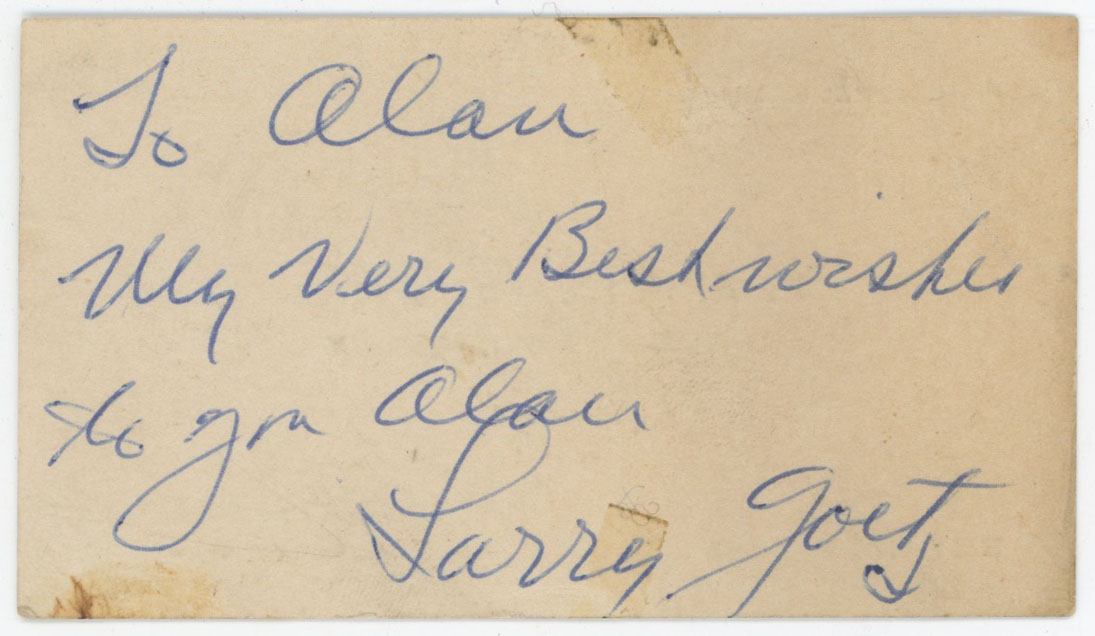 To Alan
My Very Best wishes
to you Alan
Larry Goetz